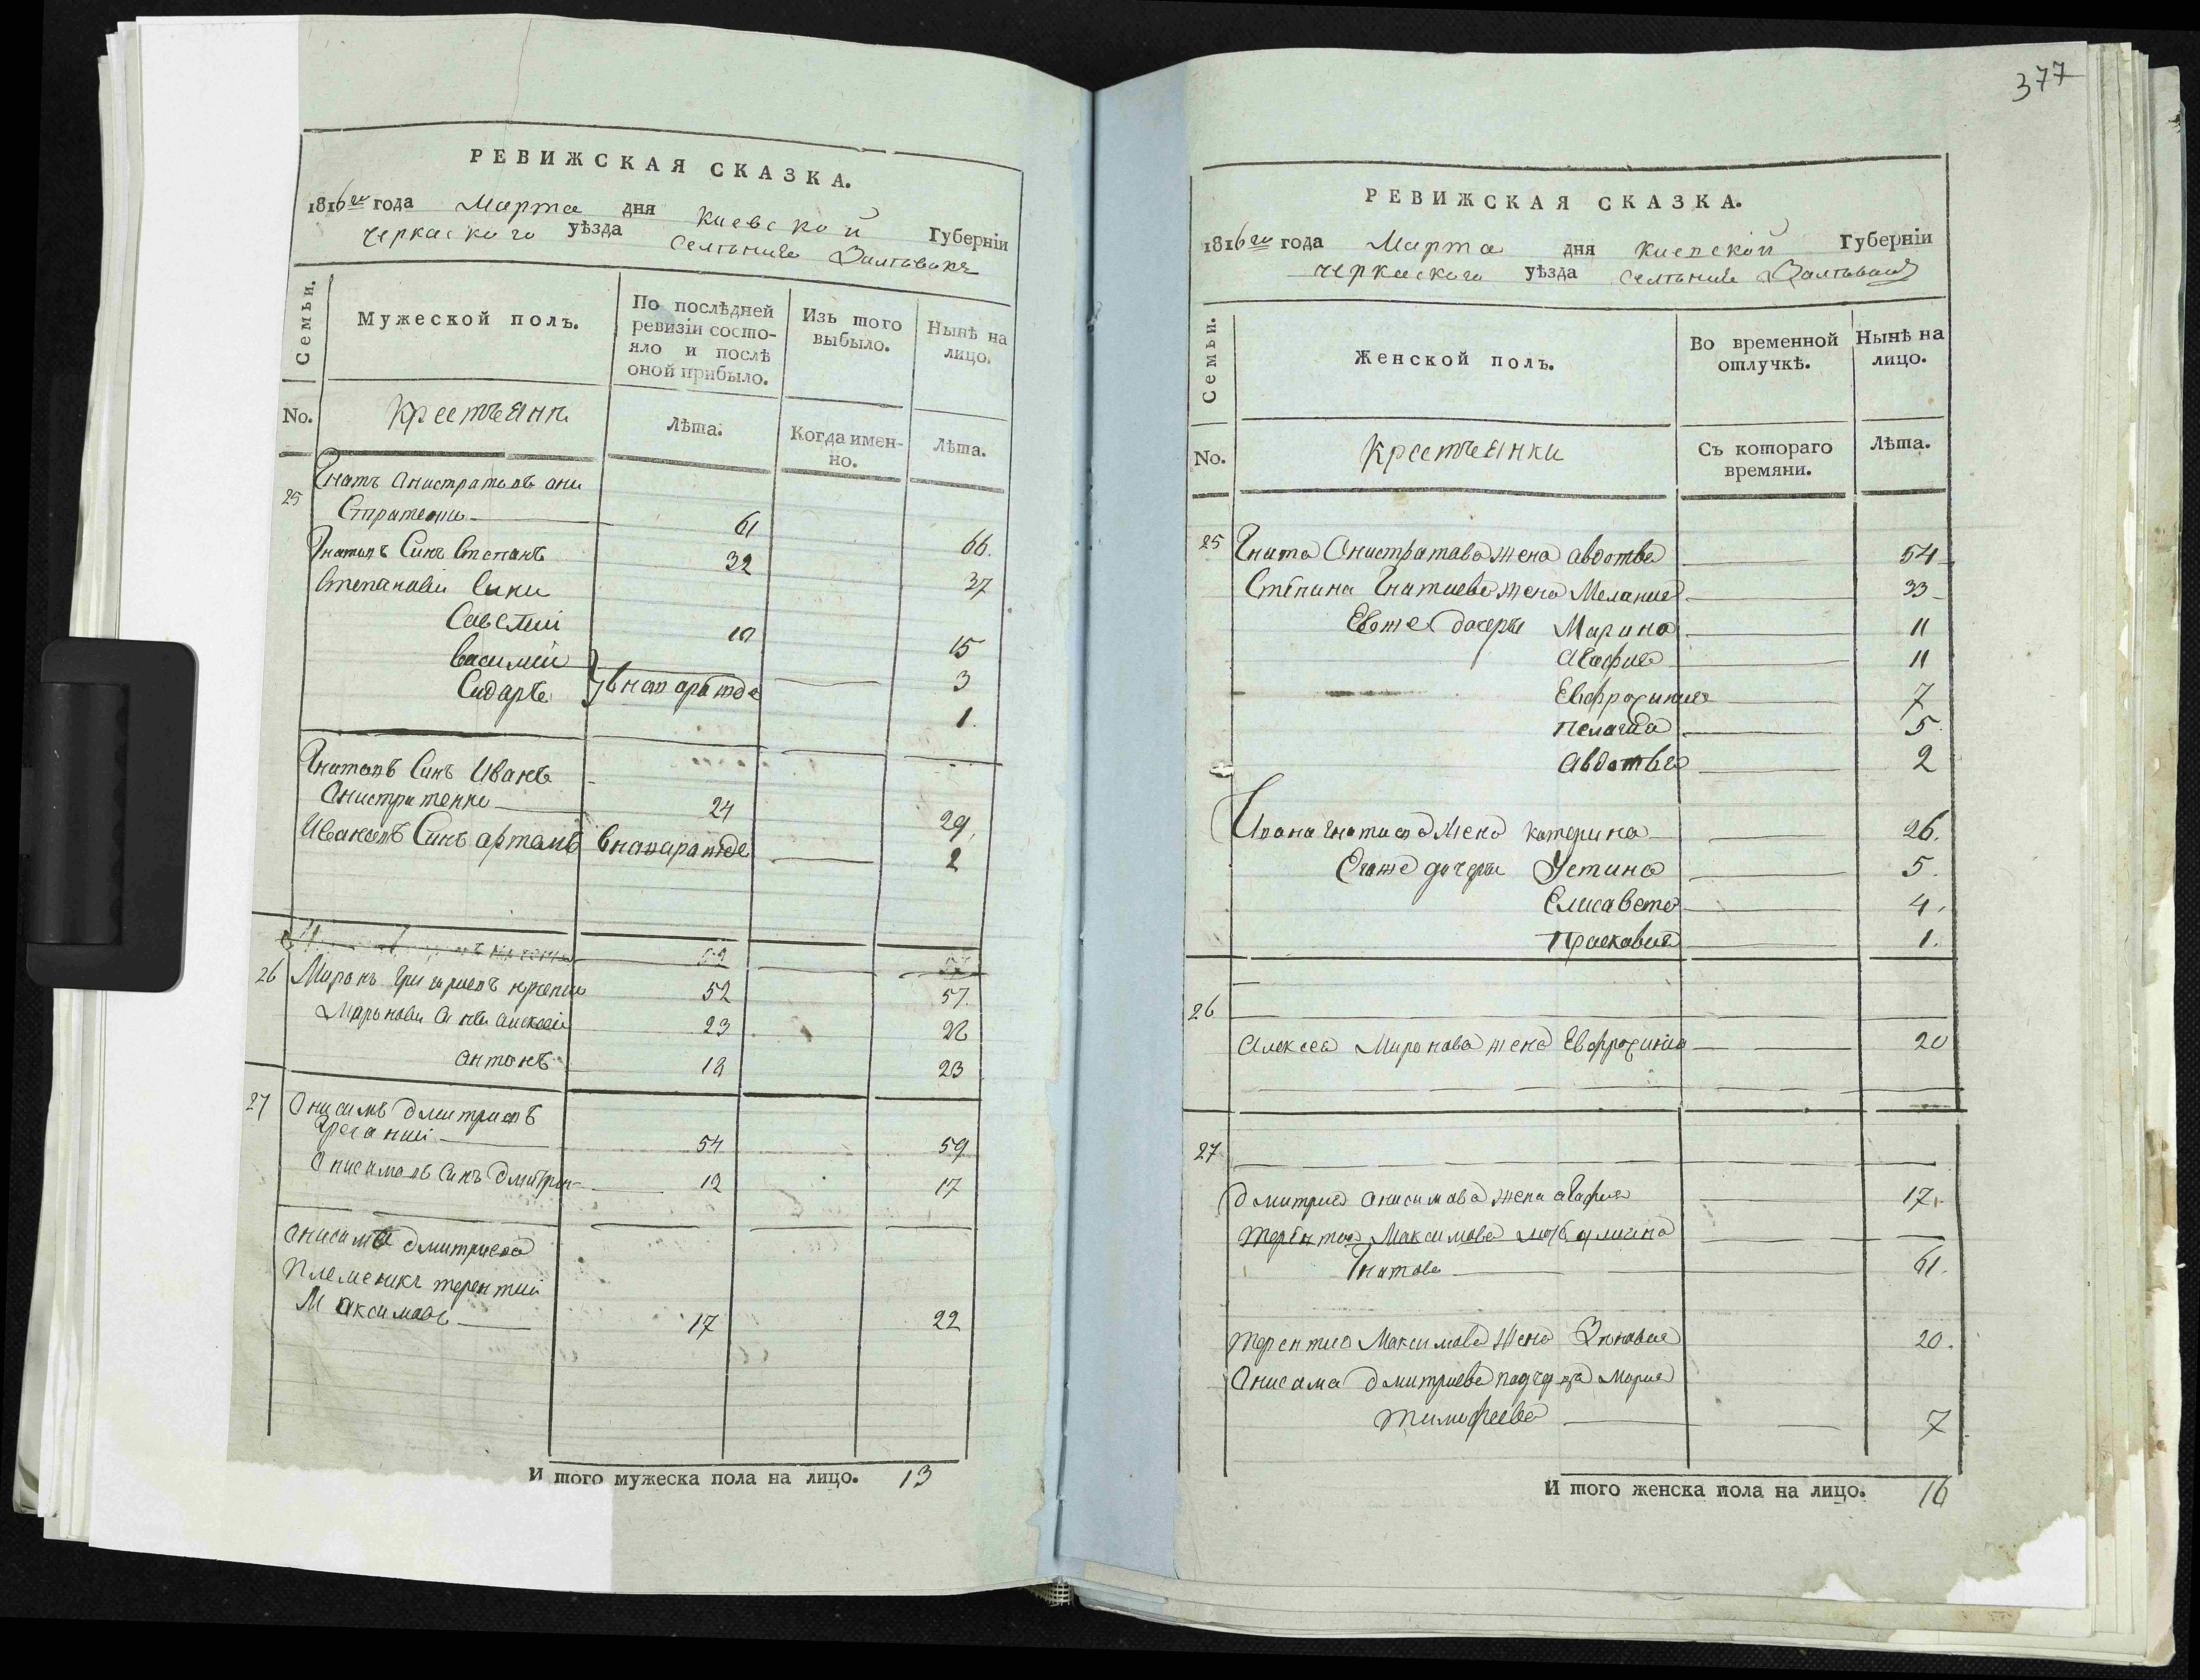 377
РЕВИЖСКАЯ СКАЗКА.
1816го года Марта дня Киевской Губернїи
черкаского уѣзда селѣния
Семьи.
Мужеской полъ.
По послѣдней ревизїи состо-
яло и послѣ
оной прибыло.
Изъ того выбыло.
Нынѣ на лицо.
No.
Крестьяни
Лѣта.
Когда имен-
но.
Лѣта.
25 Гнатъ Анистратовъ они
61 66.
Гнатовъ Синъ Степанъ 32 37
Степанови Сини
Савелий 10 15
Василий 3
Сидаръ 1.
Гнатовъ Синъ Иванъ
Анистратенко 24 29.
Ивановъ Синъ артемъ 2
26 Миронъ 52 57.
Миронови Алексей 23 28
антонъ 18 23
27 Онисимъ дмитриевъ
54 59
Онисимовъ Синъ дмитри 12 17
Анисима дмитриева
Племеникъ терентий
Максимовъ 17 22
И того мужеска пола на лицо. 13
РЕВИЖСКАЯ СКАЗКА.
1816го года Марта дня Киевской Губернїи
черкаского уѣзда селѣния
Семьи.
Женской полъ.
Во временной отлучкѣ.
Нынѣ на лицо.
No.
Крестьянки
Съ котораго
времяни.
Лѣта.
25 Гната Онистратова жена авдотья 54
Степана Гнатиева жена Мелания 33
Евоже дочеры Марина 11
агафия 11
Евфросиния 7
пелагия 5
авдотья 2
Ивана Гнатиева жена катерина 26.
Егоже дочеры Устина 5.
Елисавета 4.
Праскавия 1.
26
Алексея Миронова жена Евфросиния 20
27
Дмитрия анисимова жена агафия 17.
Терентия Максимова
Гнатова 61.
Терентия Максимова жена Зиновия 20.
Анисима дмитриева падчерица Мария
Тимофеева 7
И того женска пола на лицо. 16